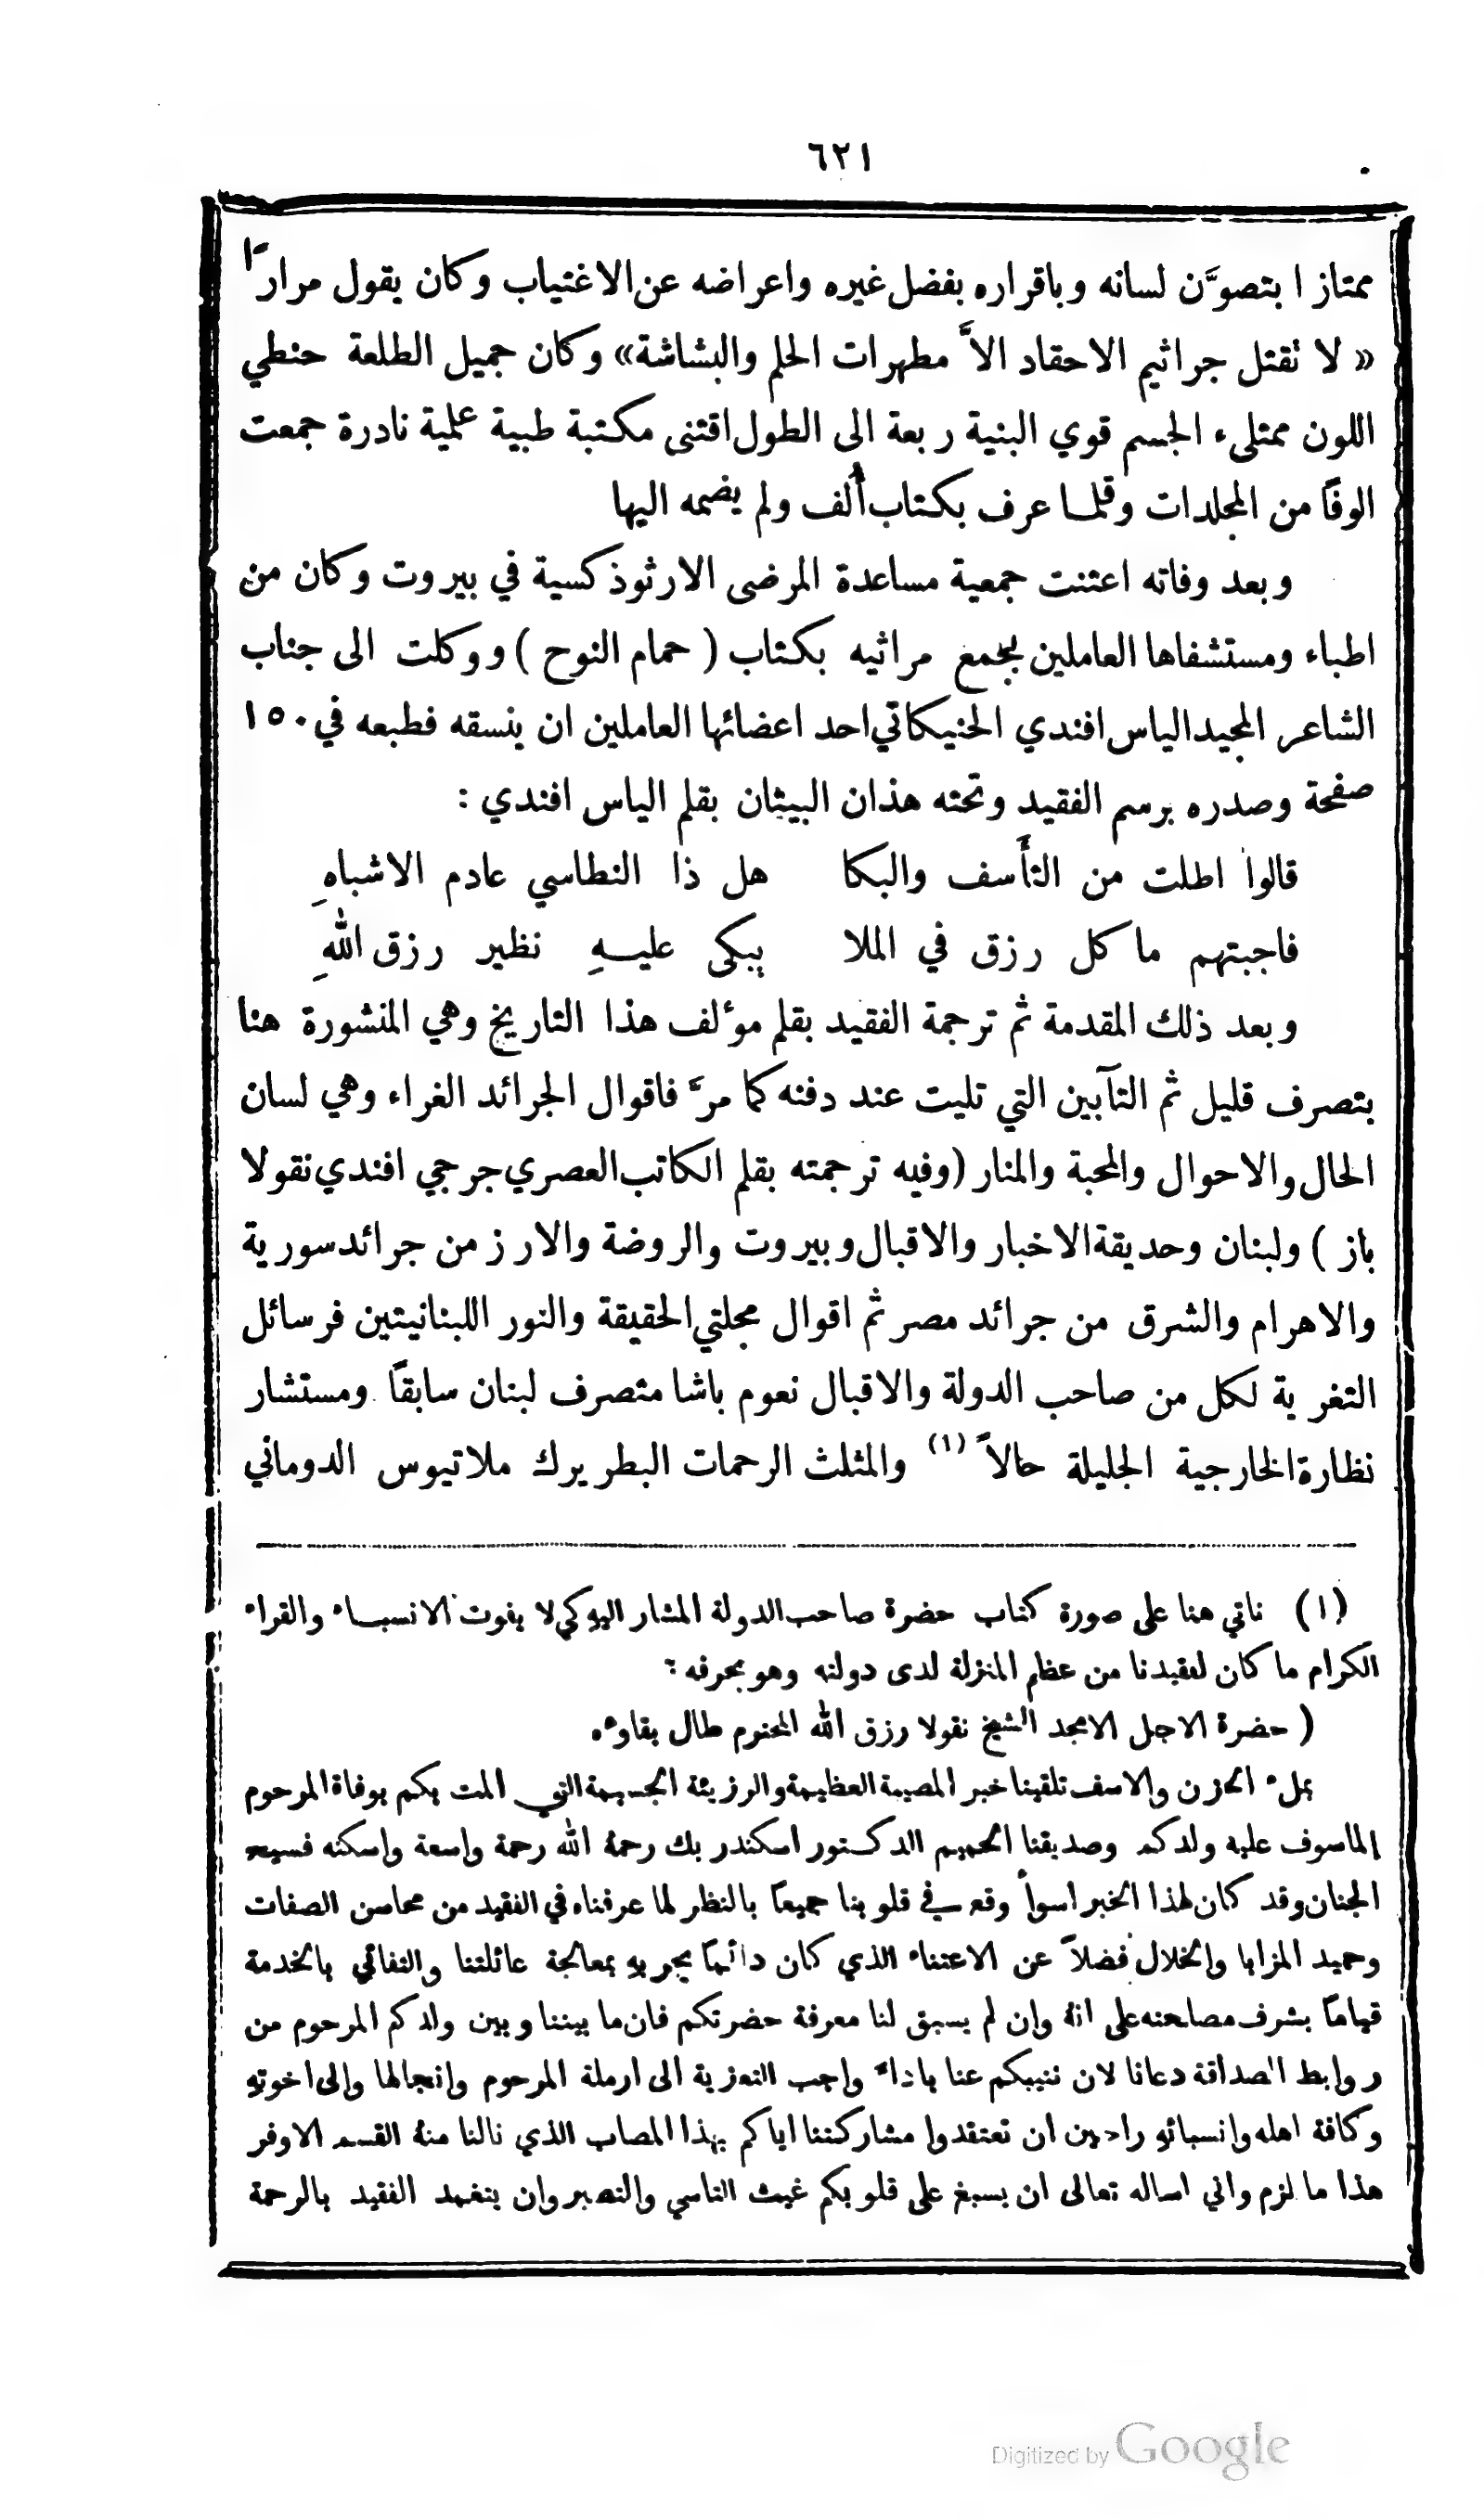 ٦٢١
ممتازا بتصوَّن لسانه وباقراره بفضل غيره واعراضه عن الاغتياب وكان يقول مرارًا
« لا نقتل جراثيم الاحقاد الاَّ مطهرات الحلم والبشاشة» وكان جميل الطلعة حنطي
اللون ممتلىء الجسم قوي البنية ربعة الى الطول اقتنى مكتبة طبية علمية نادرة جمعت
الوفًا من المجلدات وقلما عرف بكتاب أُلف ولم يضمه اليها
وبعد وفاته اعتنت جمعية مساعدة المرضى الارثوذكسية في بيروت وكان من
اطباء ومستشفاها العاملين بجمع مراثيه بكتاب ( حمام النوح ) ووكلت الى جناب
الشاعر المجيد الياس افندي الحنيكاتي احد اعضائها العاملين ان ينسقه فطبعه في ١٥٠
صفحة وصدره برسم الفقيد وتحته هذان البيتان بقلم الياس افندي :
قالوا اطلت من التأسف والبكا هل ذا النطاسي عادم الاشباهِ
فاجبتهم ما كل رزق في الملا يبكى عليهِ نظير رزق اللهِ
وبعد ذلك المقدمة ثم ترجمة الفقيد بقلم موٴلف هذا التاريخ وهي المنشورة هنا
بتصرف قليل ثم التآبين التي تليت عند دفنه كما مرَّ فاقوال الجرائد الغراء وهي لسان
الحال والاحوال والمحبة والمنار (وفيه ترجمته بقلم الكاتب العصري جرجي افندي نقولا
باز ) ولبنان وحديقة الاخبار والاقبال وبيروت والروضة والارز من جرائد سورية
والاهرام والشرق من جرائد مصر ثم اقوال مجلتي الحقيقة والنور اللبنانيتين فرسائل
التغرية لكل من صاحب الدولة والاقبال نعوم باشا متصرف لبنان سابقًا ومستشار
نظارة الخارجية الجليلة حالاً (١) والمثلث الرحمات البطريرك ملاتيوس الدوماني
(١) ناتي هنا على صورة كتاب حضرة صاحب الدولة المشار اليهِ كي لا يفوت الانسباء والقراء
الكرام ما كان لفقيدنا من عظم المنزلة لدى دولته وهو بحرفه :
( حضرة الاجل الامجد الشيخ نقولا رزق الله المحترم طال بقاوٴه
بملء الحزن والاسف تلقينا خبر المصيبة العظيمة والرزيئة الجسيمة التي المت بكم بوفاة المرحوم
الماسوف عليه ولدكم وصديقنا الحميم الدكتور اسكندر بك رحمهُ الله رحمة واسعة واسكنه فسيح
الجنان وقد كان لهذا الخبر اسوأ وقع في قلوبنا جميعًا بالنظر لما عرفناه في الفقيد من محاسن الصفات
وحميد المزايا والخلال فضلاً عن الاعتناء الذي كان دائمًا يجريهِ بمعالجة عائلتنا والتفاني بالخدمة
قيامًا بشرف مصلحته على انهُ وان لم يسبق لنا معرفة حضرتكم فان ما بيننا وبين ولدكم المرحوم من
روابط الصداقة دعانا لان ننيبكم عنا باداء واجب التعزية الى ارملة المرحوم وانجالها والى اخوتهِ
وكافة اهله وانسبائهِ راجين ان تعتقدوا مشاركتنا اياكم بهذا المصاب الذي نالنا منهُ القسم الاوفر
هذا ما لزم واني اساله تعالى ان يسبغ على قلوبكم غيث التاسي والتصبر وان يتغمد الفقيد بالرحمة
Digitized by Google